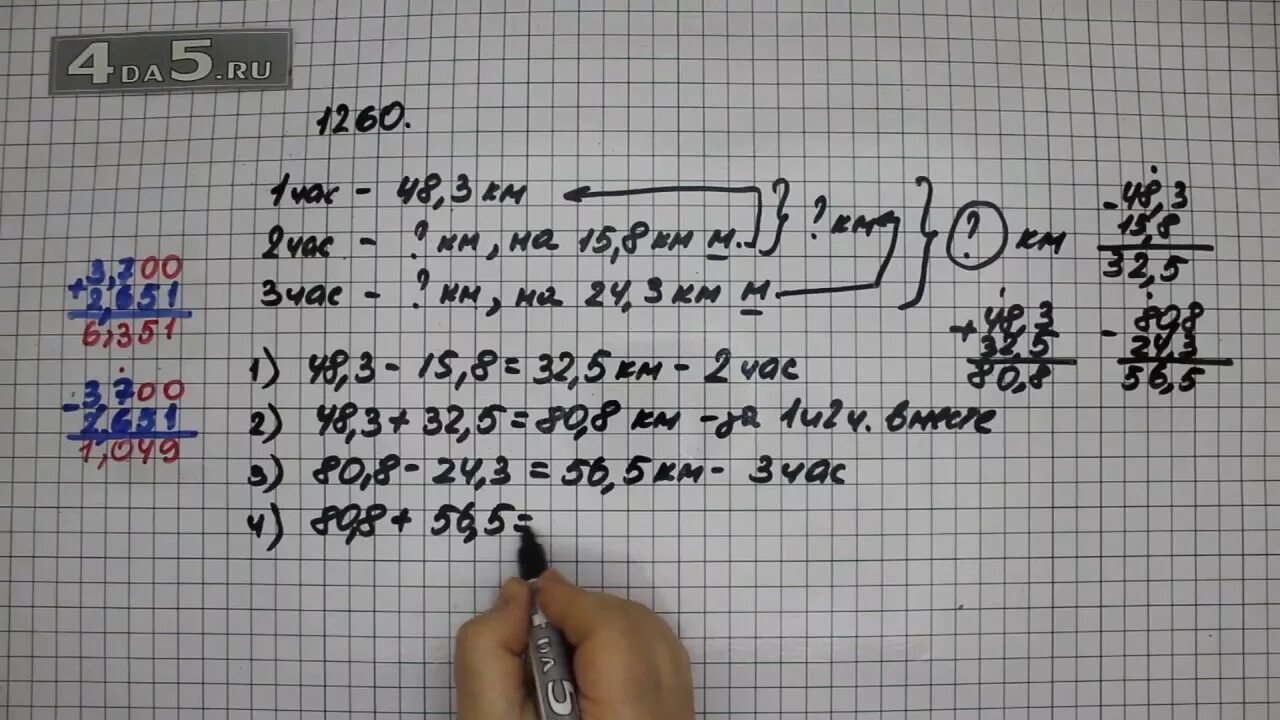 4DA5.RU
1260.
1 час - 48,3 км
2 час - ? км, на 15,8 км м.
? км
3 час - ? км, на 24,3 км м.
? км
1) 48,3 - 15,8 = 32,5 км - 2 час
2) 48,3 + 32,5 = 80,8 км - за 1 и 2 ч. вместе
3) 80,8 - 24,3 = 56,5 км - 3 час
4) 80,8 + 56,5 =
+ 3,700
2,651
6,351
- 3,700
2,651
1,049
- 48,3
15,8
32,5
+ 48,3
32,5
80,8
- 80,8
24,3
56,5
DA 5